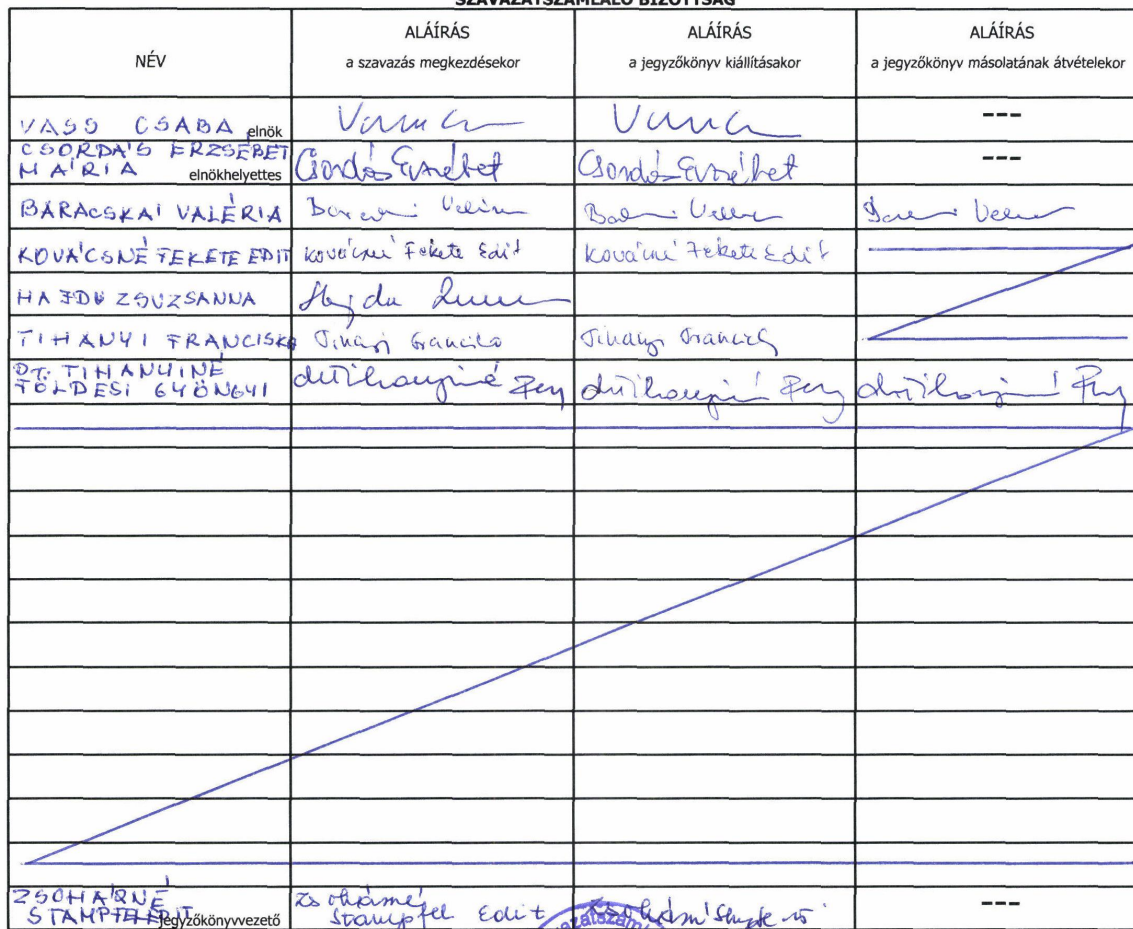 SZAVAZATSZÁMLÁLÓ BIZOTTSÁG
NÉV
ALÁÍRÁS
a szavazás megkezdésekor
ALÁÍRÁS
a jegyzőkönyv kiállításakor
ALÁÍRÁS
a jegyzőkönyv másolatának átvételekor
VASS CSABA elnök
---
CSORDÁS ERZSÉBET
MÁRIA elnökhelyettes
Csordás Erzsébet
Csordás Erzsébet
---
BARACSKAI VALÉRIA
KOVÁCSNÉ FEKETE EDIT
Kovácsné Fekete Edit
Kovácsné Fekete Edit
HAJDU ZSUZSANNA
Hajdu
TIHANYI FRANCISKA
Tihanyi Franciska
Tihanyi Franciska
DR. TIHANYINÉ
FÖLDESI GYÖNGYI
dr Tihanyiné
dr Tihanyiné
dr Tihanyiné
ZSOHÁRNÉ
STAMPFEL EDIT jegyzőkönyvvezető
Zsohárné
Stampfel Edit
Zsohárné
---